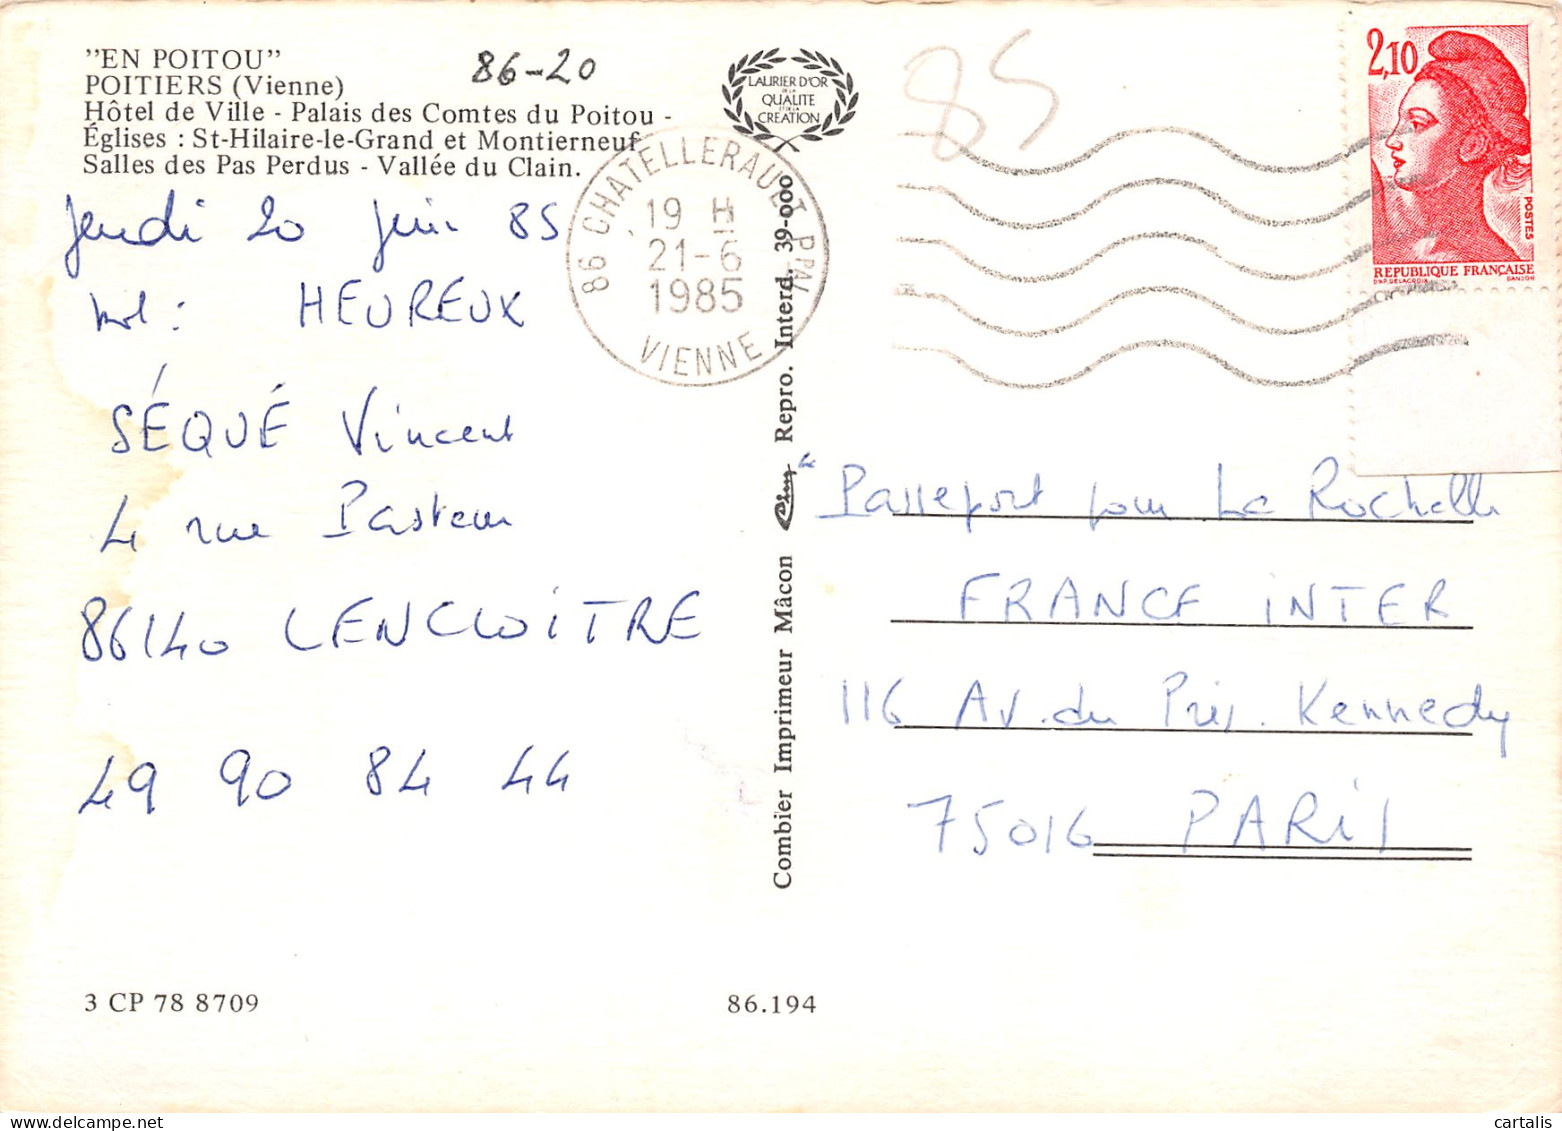 "EN POITOU"
POITIERS (Vienne)
Hôtel de Ville - Palais des Comtes du Poitou -
Églises : St-Hilaire-le-Grand et Montierneuf
Salles des Pas Perdus - Vallée du Clain.
86-20
LAURIER D'OR
DE LA
QUALITE
ET DE LA
CREATION
85
2,10
POSTES
REPUBLIQUE FRANÇAISE
D'AP. DELACROIX GANDON
86 CHATELLERAULT PPAL
19 H
21-6
1985
VIENNE
Jeudi 20 Juin 85
Mot : HEUREUX
SÉQUÉ Vincent
4 rue Pasteur
86140 LENCLOITRE
49 90 84 44
Combier Imprimeur Mâcon Cim Repro. Interd. 39-000
"Passeport pour La Rochelle
FRANCE INTER
116 Av. du Prés. Kennedy
75016 PARIS
3 CP 78 8709
86.194
cartalis